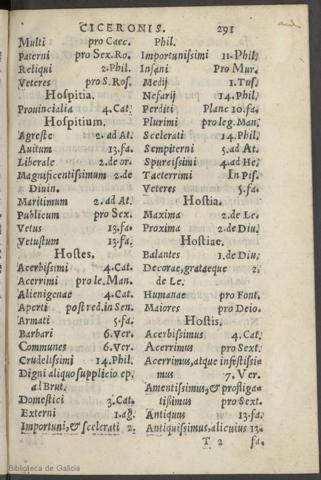 CICERONIS. 291
Multi pro Caec.
Paterni pro Sex. Ro.
Reliqui 2. Phil.
Veteres pro S. Ros.
Hospitia.
Provincialia 4. Cat.
Hospitium.
Agreste 2. ad At.
Avitum 13. fa.
Liberale 2. de or.
Magnificentissimum 2. de
Divin.
Maritimum 2. ad At.
Publicum pro Sex.
Vetus 13. fa.
Vetustum 13. fa.
Hostes.
Acerbissimi 4. Cat.
Acerrimi pro le. Man.
Alienigenae 4. Cat.
Aperti post red. in Sen.
Armati 5. fa.
Barbari 6. Ver.
Communes 6. Ver.
Crudelissimi 14. Phil.
Digni aliquo supplicio ep.
ad Brut.
Domestici 3. Cat.
Externi 1. ag.
Importuni, & scelerati 2.
Phil.
Importunissimi 11. Phil.
Insani Pro Mur.
Medij 1. Tus.
Nefarij 14. Phil.
Perditi Planc 10. fa.
Plurimi pro leg. Man.
Scelerati 14. Phil.
Sempiterni 5. ad At.
Spurcissimi 4. ad He.
Taeterrimi In Pis.
Veteres 5. fa.
Hostia.
Maxima 2. de Le.
Proxima 2. de Diu.
Hostiae.
Balantes 1. de Diu.
Decorae, grataeque 2.
de Le.
Humanae pro Font.
Maiores pro Deio.
Hostis.
Acerbissimus 4. Cat.
Acerrimus pro Sext.
Acerrimus, atque infestissi
mus 7. Ver.
Amentissimus, & profliga-
tissimus pro Sext.
Antiquus 13. fa.
Antiquissimus, alicuius 13.
T 2 fa.
Biblioteca de Galicia